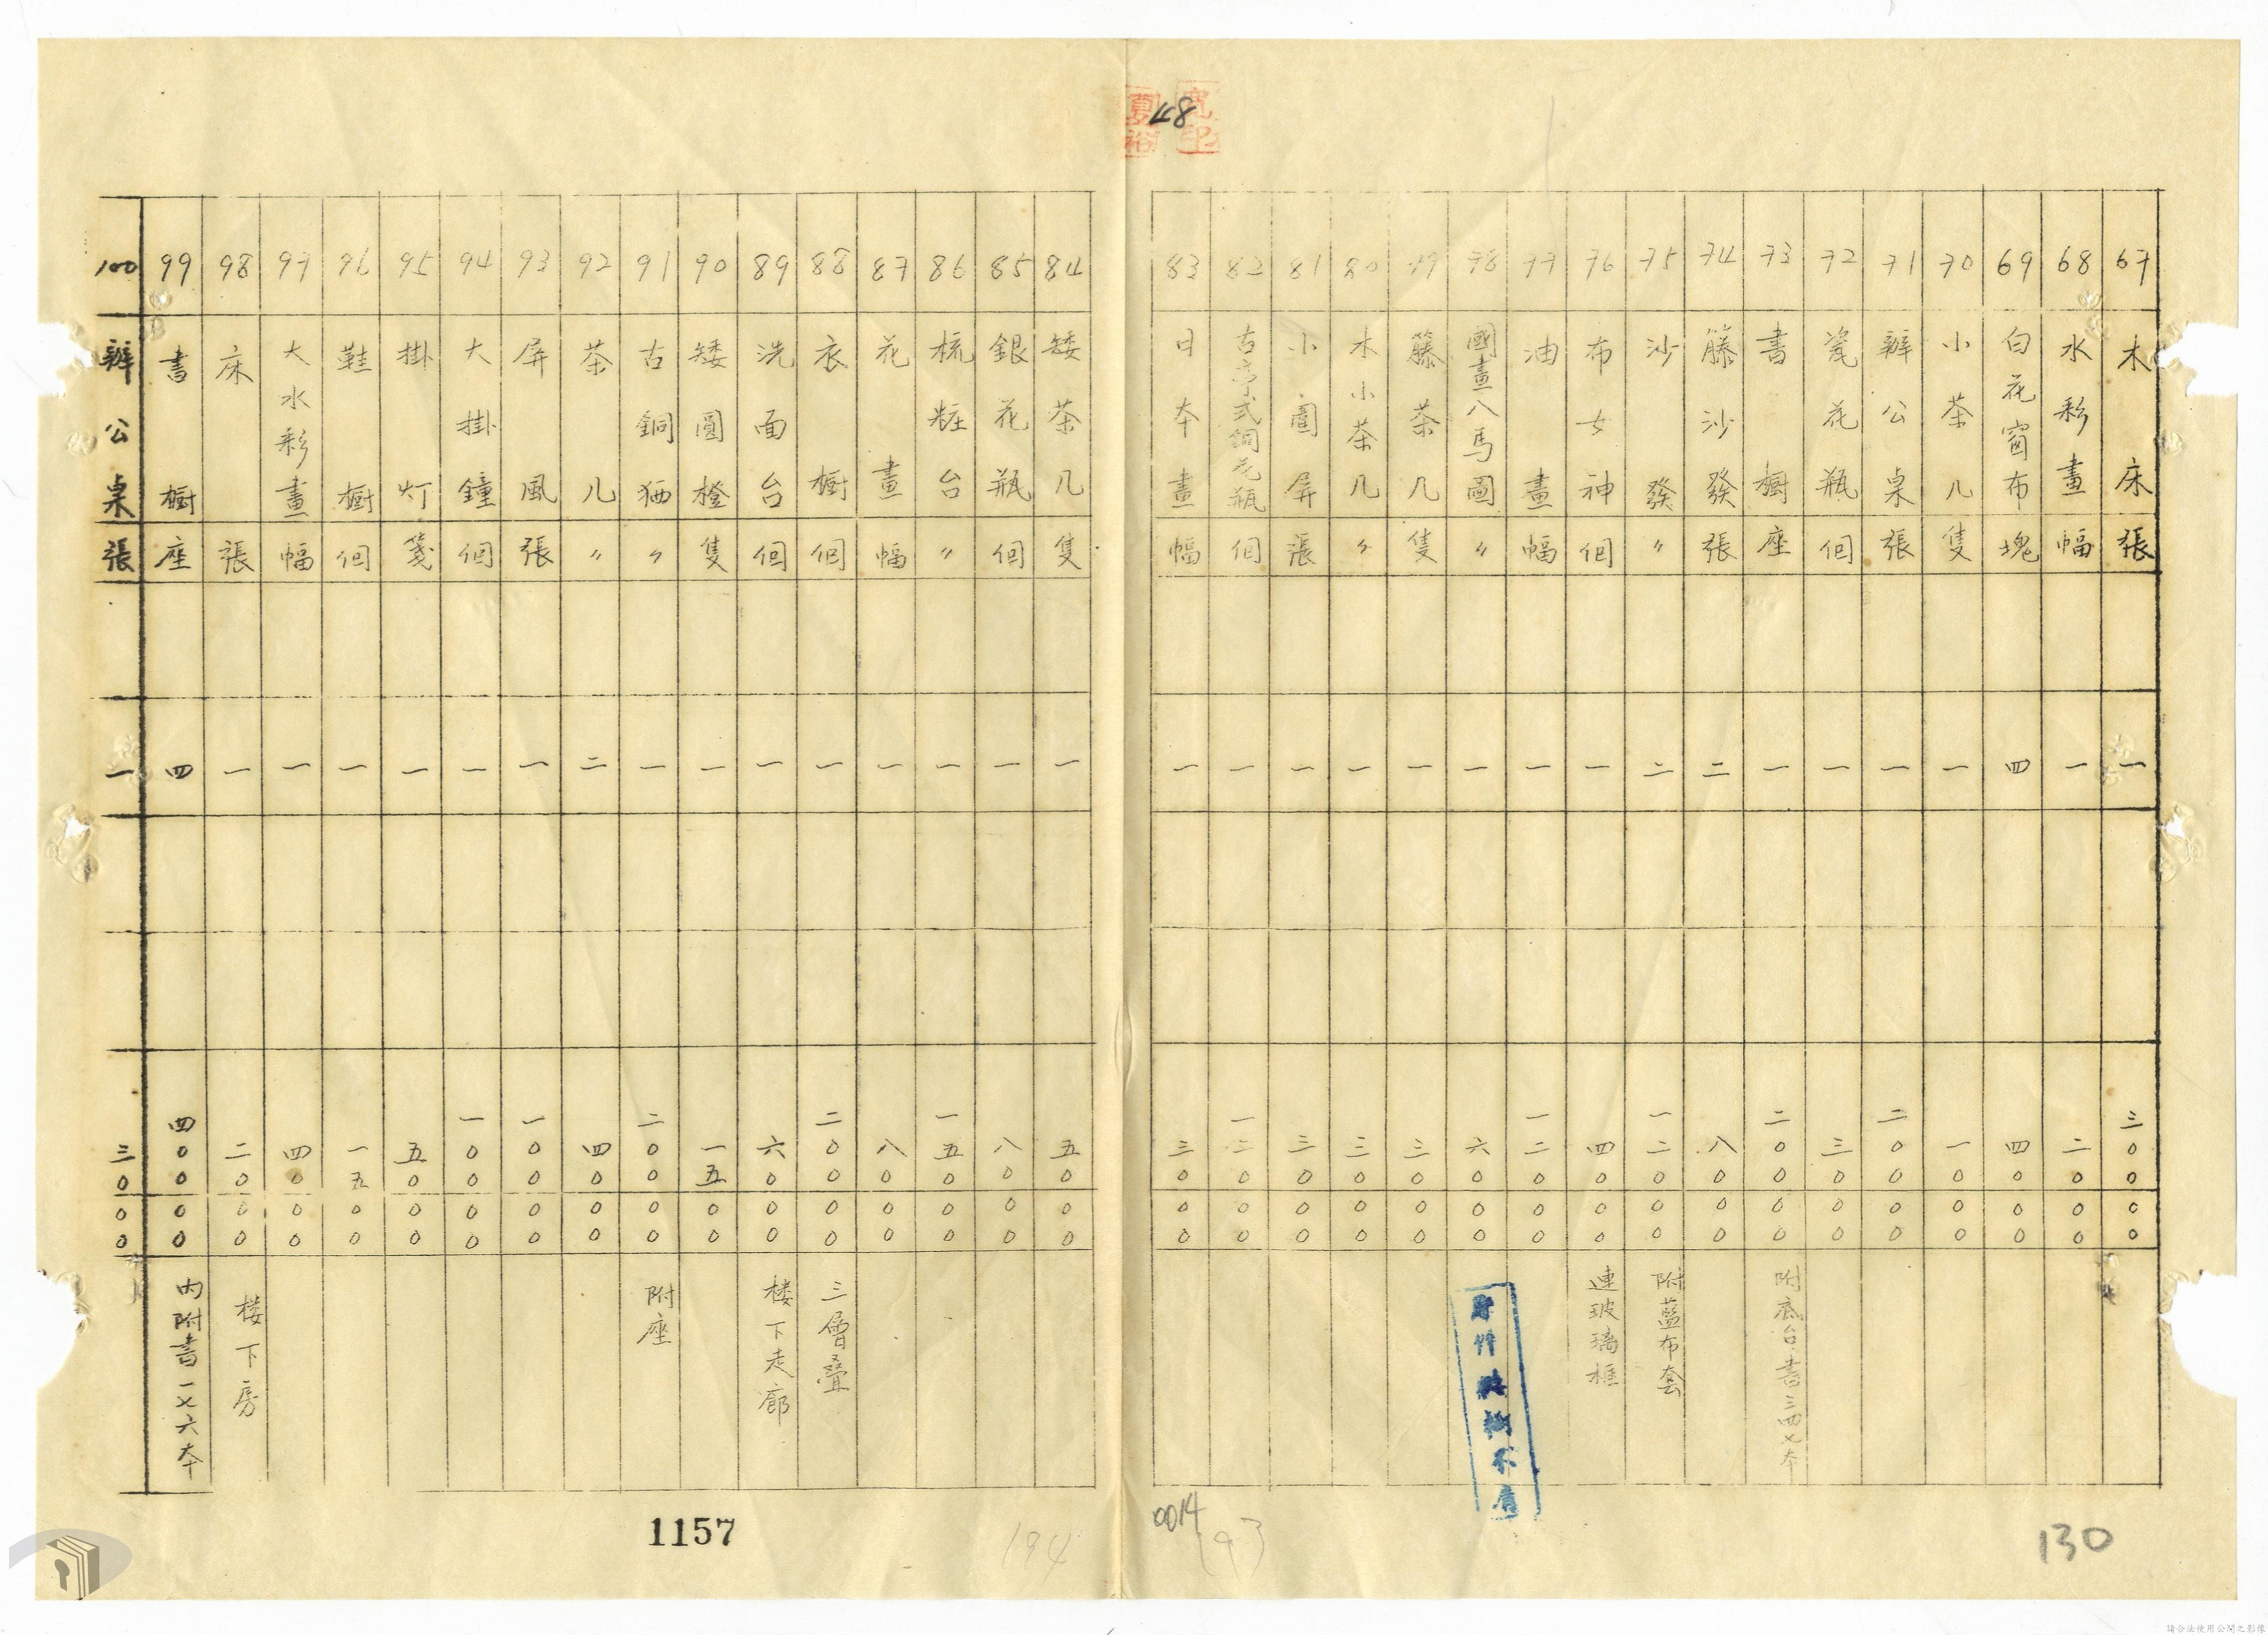 48
67 木床 張 一 三〇〇〇〇
68 水彩畫 幅 一 二〇〇〇
69 白花窗布 塊 四 四〇〇〇
70 小茶几 隻 一 一〇〇〇
71 辦公桌 張 一 二〇〇〇〇
72 瓷花瓶 個 一 三〇〇〇
73 書橱 座 一 二〇〇〇〇 附底台書三四七本
74 籐沙發 張 二 八〇〇〇
75 沙發 〃 二 一二〇〇〇 附藍布套
76 布女神 個 一 四〇〇〇 連玻璃框
77 油畫 幅 一 一二〇〇〇
78 國畫八馬圖 〃 一 六〇〇〇
79 籐茶几 隻 一 三〇〇〇
80 木小茶几 〃 一 三〇〇〇
81 小圍屏 張 一 三〇〇〇
82 式銅花瓶 個 一 一二〇〇〇
83 日本畫 幅 一 三〇〇〇
84 矮茶几 隻 一 五〇〇〇
85 銀花瓶 個 一 八〇〇〇
86 梳粧台 〃 一 一五〇〇〇
87 花畫 幅 一 八〇〇〇
88 衣橱 個 一 二〇〇〇〇 三層疊
89 洗面台 個 一 六〇〇〇 楼下走廊
90 矮圓橙 隻 一 一五〇〇
91 古銅 〃 一 二〇〇〇〇 附座
92 茶几 〃 二 四〇〇〇
93 屏風 張 一 一〇〇〇〇
94 大掛鐘 個 一 一〇〇〇〇
95 掛灯 笺 一 五〇〇〇
96 鞋橱 個 一 一五〇〇
97 大水彩畫 幅 一 四〇〇〇
98 床 張 一 二〇〇〇 楼下房
99 書橱 座 四 四〇〇〇〇 内附書一七六本
100 辦公桌 張 一 三〇〇〇
0014
193
130
1157
194
請合法使用公開之影像